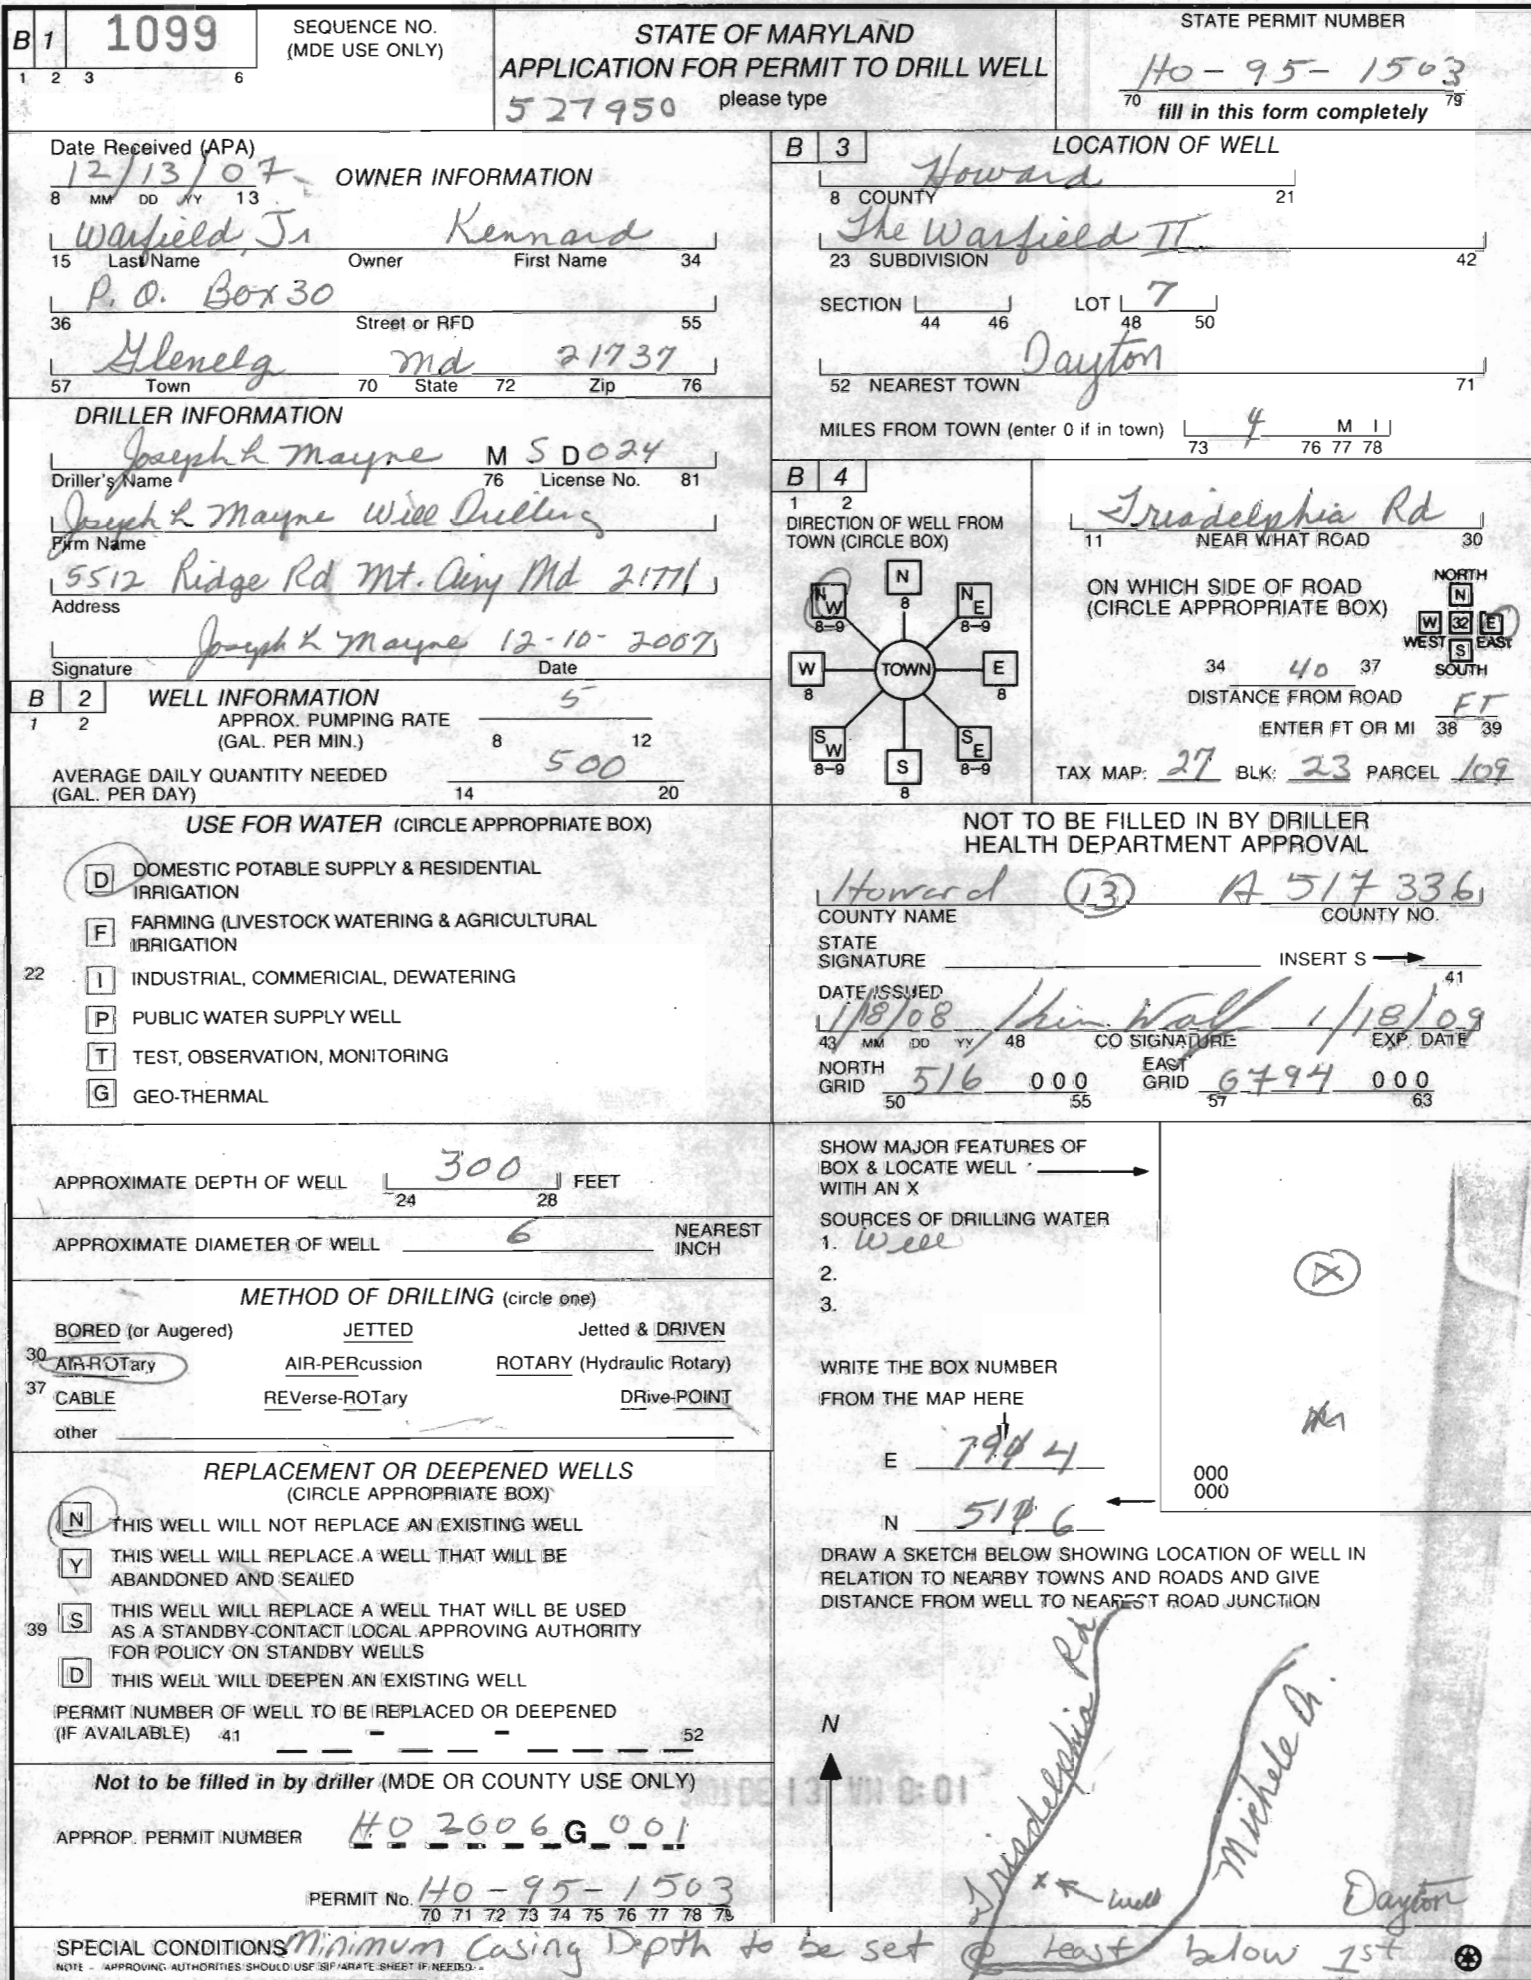 B 1 1099 SEQUENCE NO. (MDE USE ONLY)
1 2 3 6
STATE OF MARYLAND
APPLICATION FOR PERMIT TO DRILL WELL
527950 please type
STATE PERMIT NUMBER
HO-95-1503
70 79
fill in this form completely
Date Received (APA)
12/13/07
8 MM DD YY 13
OWNER INFORMATION
Warfield, Jr Kennard
15 Last Name Owner First Name 34
P.O. Box 30
36 Street or RFD 55
Glenelg Md 21737
57 Town 70 State 72 Zip 76
DRILLER INFORMATION
Joseph L Mayne M S D 024
Driller's Name 76 License No. 81
Joseph L Mayne Well Drilling
Firm Name
5512 Ridge Rd Mt. Airy Md 21771
Address
Joseph L Mayne 12-10-2007
Signature Date
B 2 WELL INFORMATION
1 2
APPROX. PUMPING RATE 5
(GAL. PER MIN.) 8 12
AVERAGE DAILY QUANTITY NEEDED 500
(GAL. PER DAY) 14 20
USE FOR WATER (CIRCLE APPROPRIATE BOX)
D DOMESTIC POTABLE SUPPLY & RESIDENTIAL
IRRIGATION
F FARMING (LIVESTOCK WATERING & AGRICULTURAL
IRRIGATION
22
I INDUSTRIAL, COMMERICIAL, DEWATERING
P PUBLIC WATER SUPPLY WELL
T TEST, OBSERVATION, MONITORING
G GEO-THERMAL
APPROXIMATE DEPTH OF WELL 300 FEET
24 28
APPROXIMATE DIAMETER OF WELL 6 NEAREST
INCH
METHOD OF DRILLING (circle one)
BORED (or Augered) JETTED Jetted & DRIVEN
30 AIR-ROTary AIR-PERcussion ROTARY (Hydraulic Rotary)
37 CABLE REVerse-ROTary DRive-POINT
other
REPLACEMENT OR DEEPENED WELLS
(CIRCLE APPROPRIATE BOX)
N THIS WELL WILL NOT REPLACE AN EXISTING WELL
Y THIS WELL WILL REPLACE A WELL THAT WILL BE
ABANDONED AND SEALED
39 S THIS WELL WILL REPLACE A WELL THAT WILL BE USED
AS A STANDBY-CONTACT LOCAL APPROVING AUTHORITY
FOR POLICY ON STANDBY WELLS
D THIS WELL WILL DEEPEN AN EXISTING WELL
PERMIT NUMBER OF WELL TO BE REPLACED OR DEEPENED
(IF AVAILABLE) 41 - - 52
Not to be filled in by driller (MDE OR COUNTY USE ONLY)
APPROP. PERMIT NUMBER HO 2006 G 001
PERMIT No. HO-95-1503
70 71 72 73 74 75 76 77 78 79
B 3 LOCATION OF WELL
Howard
8 COUNTY 21
The Warfield II
23 SUBDIVISION 42
SECTION LOT 7
44 46 48 50
Dayton
52 NEAREST TOWN 71
MILES FROM TOWN (enter 0 if in town) 4 M I
73 76 77 78
B 4
1 2
DIRECTION OF WELL FROM
TOWN (CIRCLE BOX)
N
8
NW
8-9
NE
8-9
W
8
TOWN
E
8
SW
8-9
SE
8-9
S
8
Triadelphia Rd
11 NEAR WHAT ROAD 30
ON WHICH SIDE OF ROAD
(CIRCLE APPROPRIATE BOX)
NORTH
N
W 32 E
WEST S EAST
SOUTH
34 40 37
DISTANCE FROM ROAD FT
ENTER FT OR MI 38 39
TAX MAP: 27 BLK: 23 PARCEL 109
NOT TO BE FILLED IN BY DRILLER
HEALTH DEPARTMENT APPROVAL
Howard 13 A 517336
COUNTY NAME COUNTY NO.
STATE
SIGNATURE INSERT S
41
DATE ISSUED
1/18/08 1/18/09
43 MM DD YY 48 CO SIGNATURE EXP. DATE
NORTH GRID 516 000 EAST GRID 0794 000
50 55 57 63
SHOW MAJOR FEATURES OF
BOX & LOCATE WELL
WITH AN X
SOURCES OF DRILLING WATER
1. Well
2.
3.
X
WRITE THE BOX NUMBER
FROM THE MAP HERE
E 794
N 516
000
000
DRAW A SKETCH BELOW SHOWING LOCATION OF WELL IN
RELATION TO NEARBY TOWNS AND ROADS AND GIVE
DISTANCE FROM WELL TO NEAREST ROAD JUNCTION
N
Triadelphia Rd
Triadelphia
Michele Dr.
x well
Dayton
SPECIAL CONDITIONS Minimum Casing Depth to be set @ least below 1st
NOTE - APPROVING AUTHORITIES SHOULD USE SEPARATE SHEET IF NEEDED